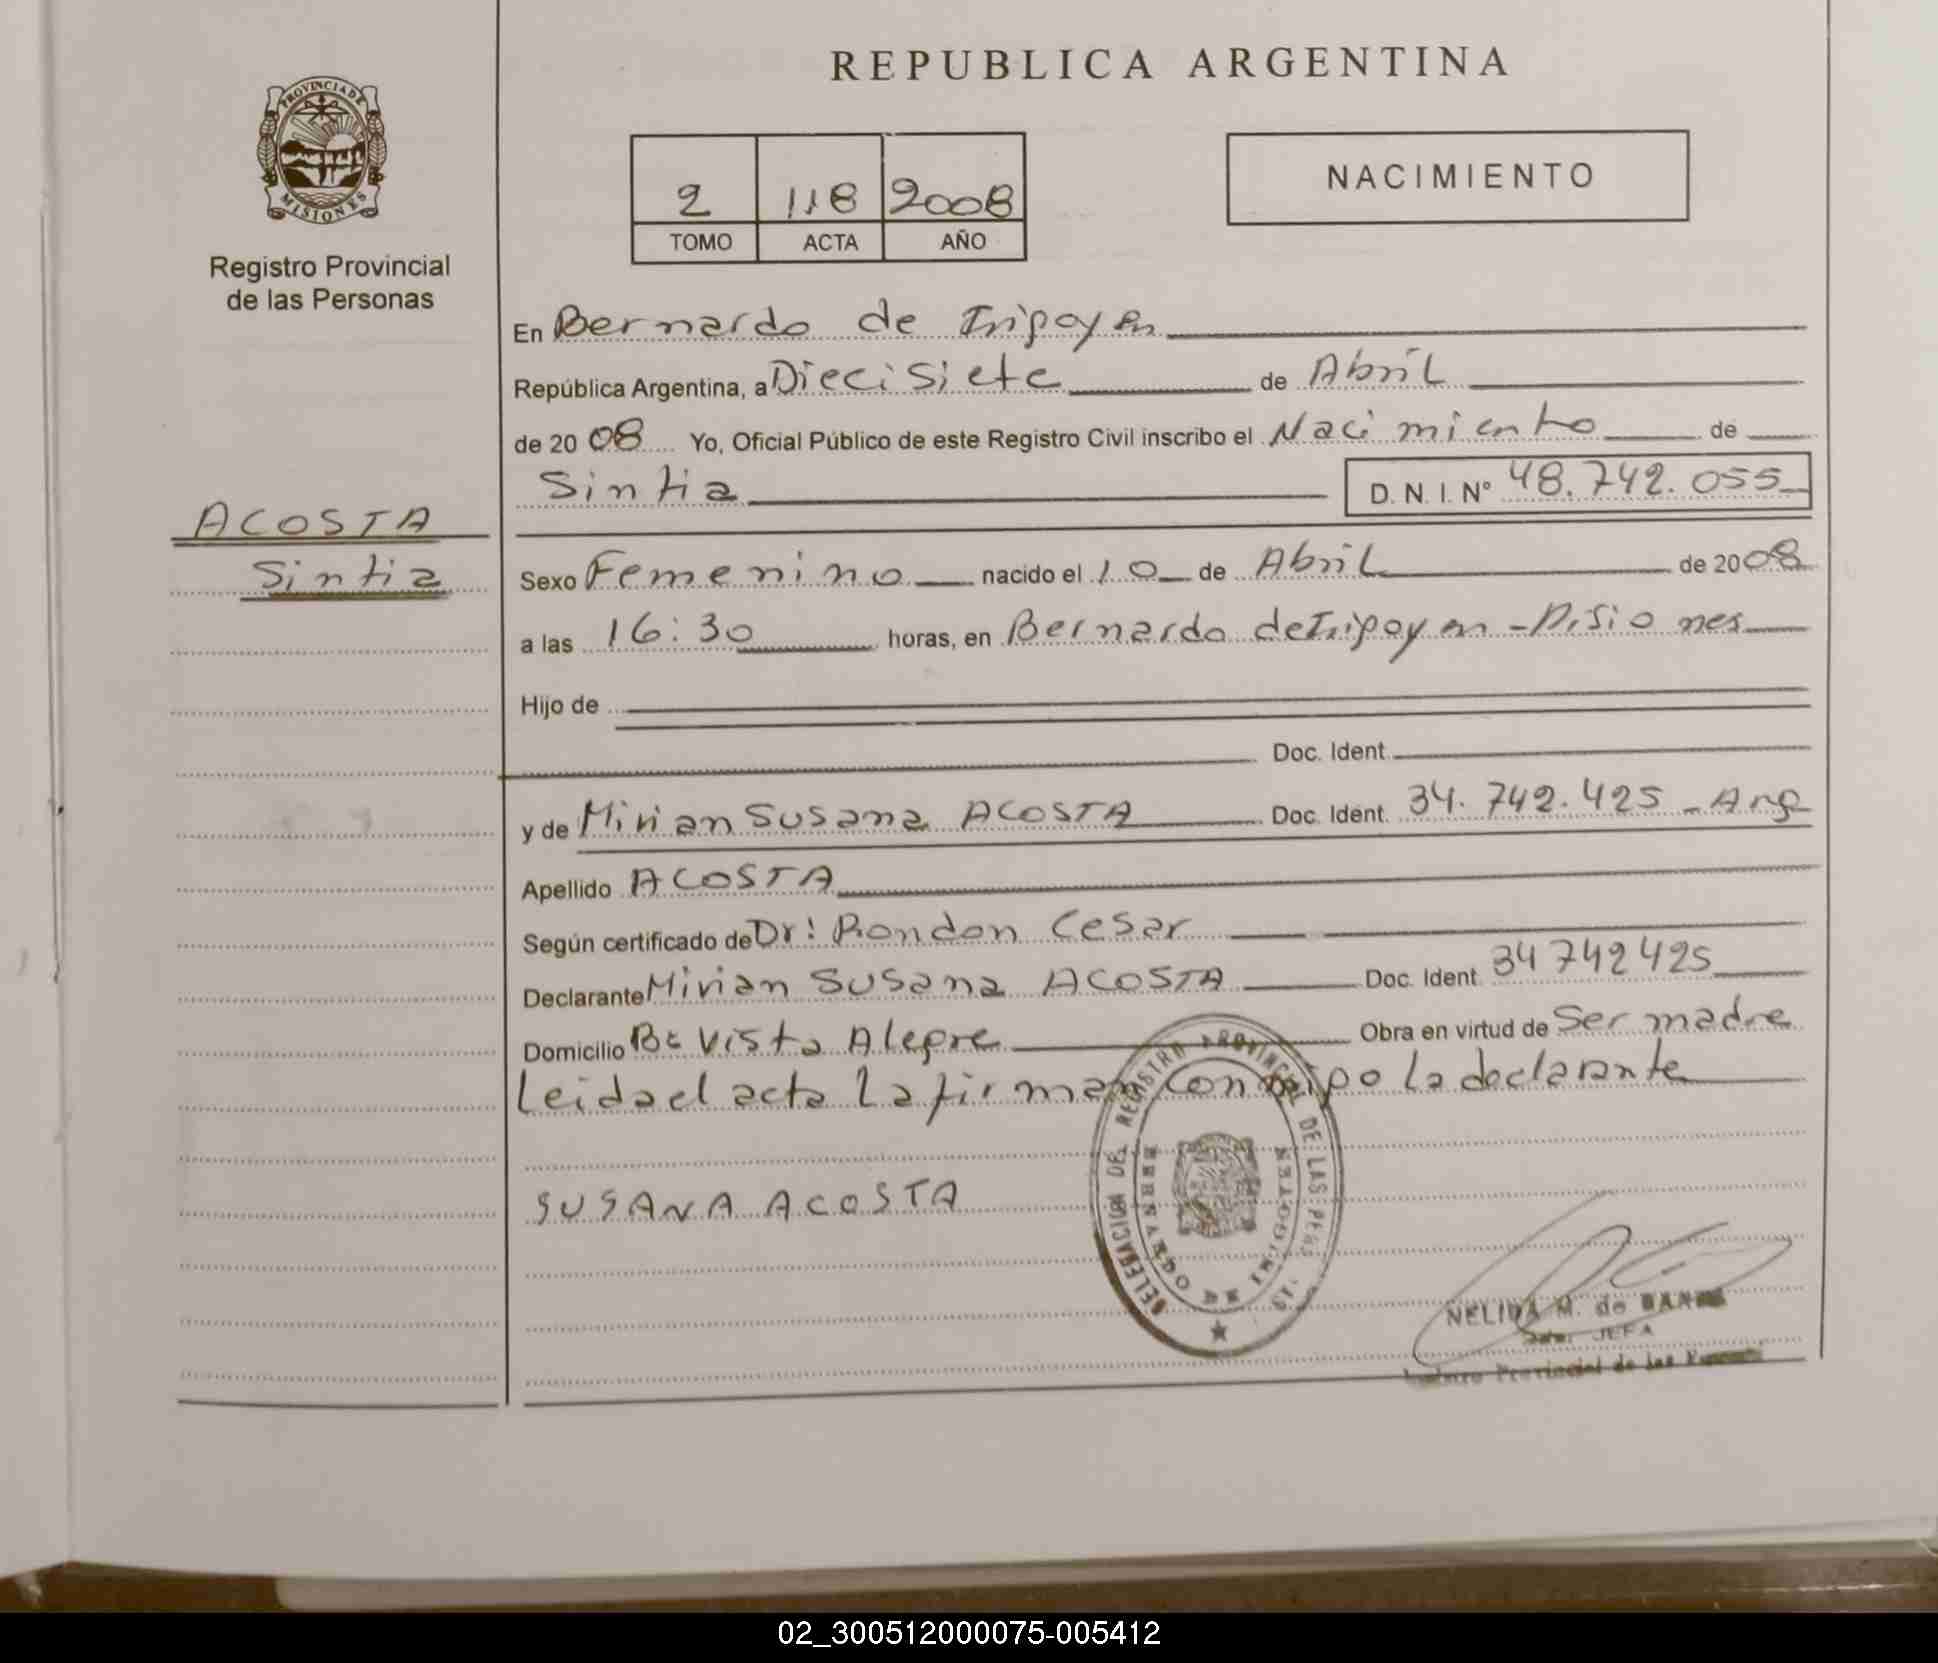 REPUBLICA ARGENTINA
PROVINCIA DE
MISIONES
Registro Provincial
de las Personas
2 118 2008
TOMO ACTA AÑO
NACIMIENTO
En Bernardo de Irigoyen
República Argentina, a Diecisiete de Abril
de 2008 Yo, Oficial Público de este Registro Civil inscribo el Nacimiento de
Sintia D. N. I. Nº 48.742.055
ACOSTA
Sintia
Sexo Femenino nacido el 10 de Abril de 2008
a las 16:30 horas, en Bernardo de Irigoyen - Misiones
Hijo de
Doc. Ident.
y de Mirian Susana ACOSTA Doc. Ident. 34.742.425 - Arg
Apellido ACOSTA
Según certificado de Dr: Rondon Cesar
Declarante Mirian Susana ACOSTA Doc. Ident. 34742425
Domicilio Bº Vista Alegre Obra en virtud de Ser madre
Leida el acta la firman conmigo la declarante
SUSANA ACOSTA
DELEGACION DEL REGISTRO PROVINCIAL DE LAS PERS.
BERNARDO DE IRIGOYEN
NELIDA M. de
JEFA
Provincial de las
02_300512000075-005412